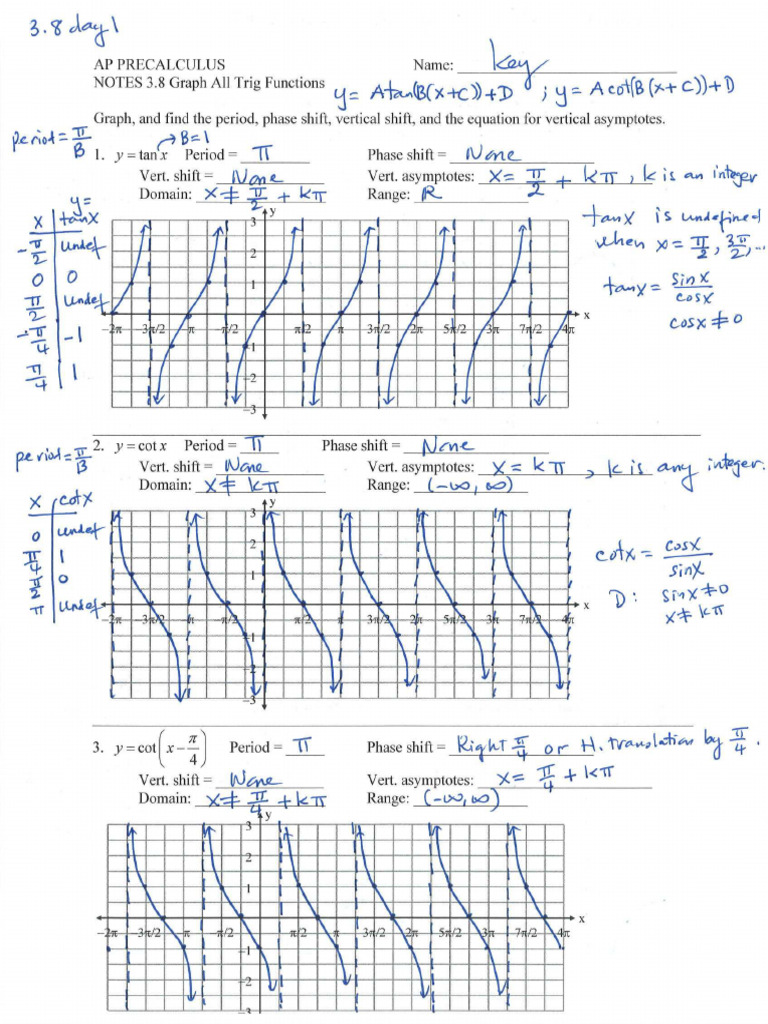 3.8 day 1
AP PRECALCULUS Name: Key
NOTES 3.8 Graph All Trig Functions y = A tan(B(x+C))+D ; y = A cot(B(x+C))+D
Graph, and find the period, phase shift, vertical shift, and the equation for vertical asymptotes.
period = π/B
→ B=1
1. y = tan x Period = π Phase shift = None
Vert. shift = None Vert. asymptotes: x = π/2 + kπ, k is an integer
Domain: x ≠ π/2 + kπ Range: ℝ
y=
x tanx
-π/2 undef
0 0
π/2 undef
-π/4 -1
π/4 1
tanx is undefined
when x = π/2, 3π/2, ...
tanx = sinx/cosx
cosx ≠ 0
y
3
2
1
−2π −3π/2 π π/2 π/2 π 3π/2 2π 5π/2 3π 7π/2 4π x
−1
−2
−3
2. y = cot x Period = π Phase shift = None
period = π/B
Vert. shift = None Vert. asymptotes: x = kπ, k is any integer.
Domain: x ≠ kπ Range: (-∞, ∞)
x cotx
0 undef
π/4 1
π/2 0
π undef
cotx = cosx/sinx
D: sinx ≠ 0
x ≠ kπ
y
3
2
1
−2π −3π/2 π π/2 π/2 π 3π/2 2π 5π/2 3π 7π/2 4π x
−1
−2
−3
3. y = cot(x − π/4) Period = π Phase shift = Right π/4 or H. translation by π/4.
Vert. shift = None Vert. asymptotes: x = π/4 + kπ
Domain: x ≠ π/4 + kπ Range: (-∞, ∞)
y
3
2
1
−2π −3π/2 π π/2 π/2 π 3π/2 2π 5π/2 3π 7π/2 4π x
−1
−2
−3